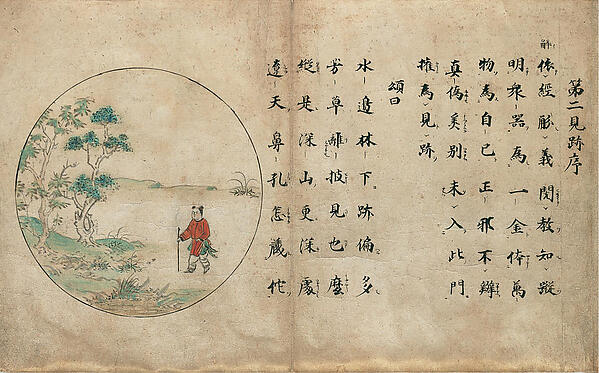 第二見跡序
依經解義閱教知蹤
明衆器為一金体萬
物為自己正邪不辨
真偽奚別未入此門
權為見跡
頌曰
水邊林下跡偏多
芳草離披見也麼
縱是深山更深處
遼天鼻孔怎藏他